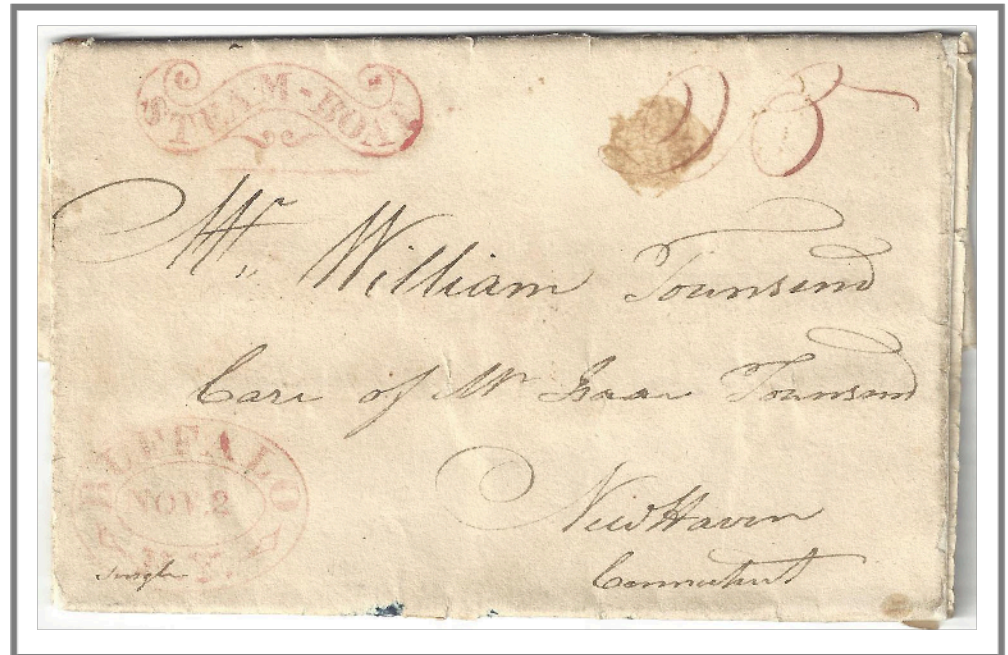 STEAM-BOAT
25
Mr. William Townsend
Care of Mr Isaac Townsend
New Haven
Connecticut
BUFFALO
NOV. 2
N.Y.
Single